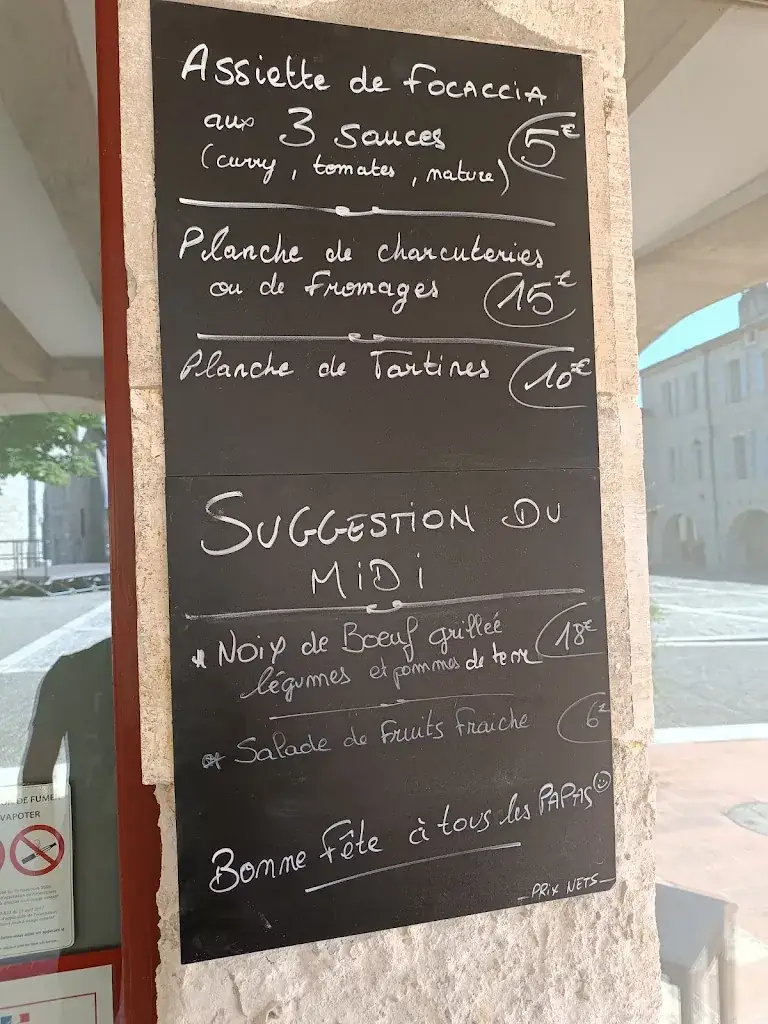 Assiette de FOCACCIA
aux 3 sauces
(curry, tomates, nature)
5€
Planche de charcuteries
ou de fromages
15€
Planche de Tartines
10€
SUGGESTION DU
MIDI
* Noix de Boeuf grillée
légumes et pommes de terre
18€
* Salade de Fruits Fraiche
6€
Bonne Fête à tous les PAPAS
PRIX NETS
DE FUMER
VAPOTER